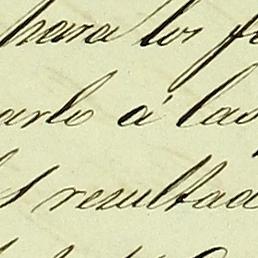 para los f
arlo á las
s resultad